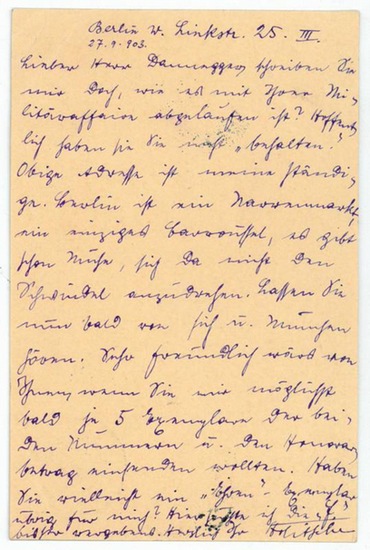 Berlin W. Linkstr. 25. III.
27.9.903.
Lieber Herr Dannegger, schreiben Sie
mir doch, wie es mit Ihrer Mi-
litäraffaire abgelaufen ist? Hoffent-
lich haben sie Sie nicht „behalten."
Obige Adresse ist meine ständi-
ge. Berlin ist ein Narrenmarkt,
ein einziges Carroussel, es gibt
schon Mühe, sich da nicht den
Schwindel anzudrehen. Lassen Sie
nun bald von sich u. München
hören. Sehr freundlich wärs von
Ihnen, wenn Sie mir möglichst
bald je 5 Exemplare der bei-
den Nummern u. den Honorar-
betrag einsenden wollten. Haben
Sie vielleicht ein „Ehren"-Exemplar
übrig für mich? Hier ich Sie
bisher vergebens. Herzlich Ihr Holitscher